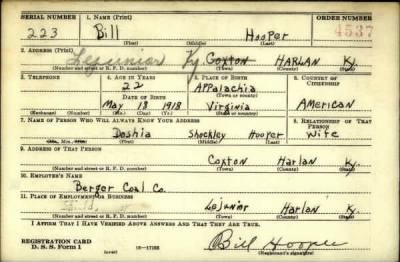 SERIAL NUMBER 1. NAME (Print) ORDER NUMBER
223 Bill Hooper 4537
(First) (Middle) (Last)
2. ADDRESS (Print)
Lejunior Ky. Coxton HARLAN Ky.
(Number and street or R. F. D. number) (Town) (County) (State)
3. TELEPHONE 4. AGE IN YEARS 5. PLACE OF BIRTH 6. COUNTRY OF CITIZENSHIP
22 APPalachia
DATE OF BIRTH (Town or county)
May 18 1918 Virginia American
(Exchange) (Number) (Mo.) (Day) (Yr.) (State or country)
7. NAME OF PERSON WHO WILL ALWAYS KNOW YOUR ADDRESS 8. RELATIONSHIP OF THAT PERSON
Doshia Shockley Hooper Wife
(Mr., Mrs., Miss) (First) (Middle) (Last)
9. ADDRESS OF THAT PERSON
Coxton Harlan Ky.
(Number and street or R. F. D. number) (Town) (County) (State)
10. EMPLOYER'S NAME
Berger Coal Co.
11. PLACE OF EMPLOYMENT OR BUSINESS
Lejunior Harlan Ky.
(Number and street or R. F. D. number) (Town) (County) (State)
I AFFIRM THAT I HAVE VERIFIED ABOVE ANSWERS AND THAT THEY ARE TRUE.
REGISTRATION CARD
D. S. S. Form 1 (over) 16—17105 Bill Hooper
(Registrant's signature)